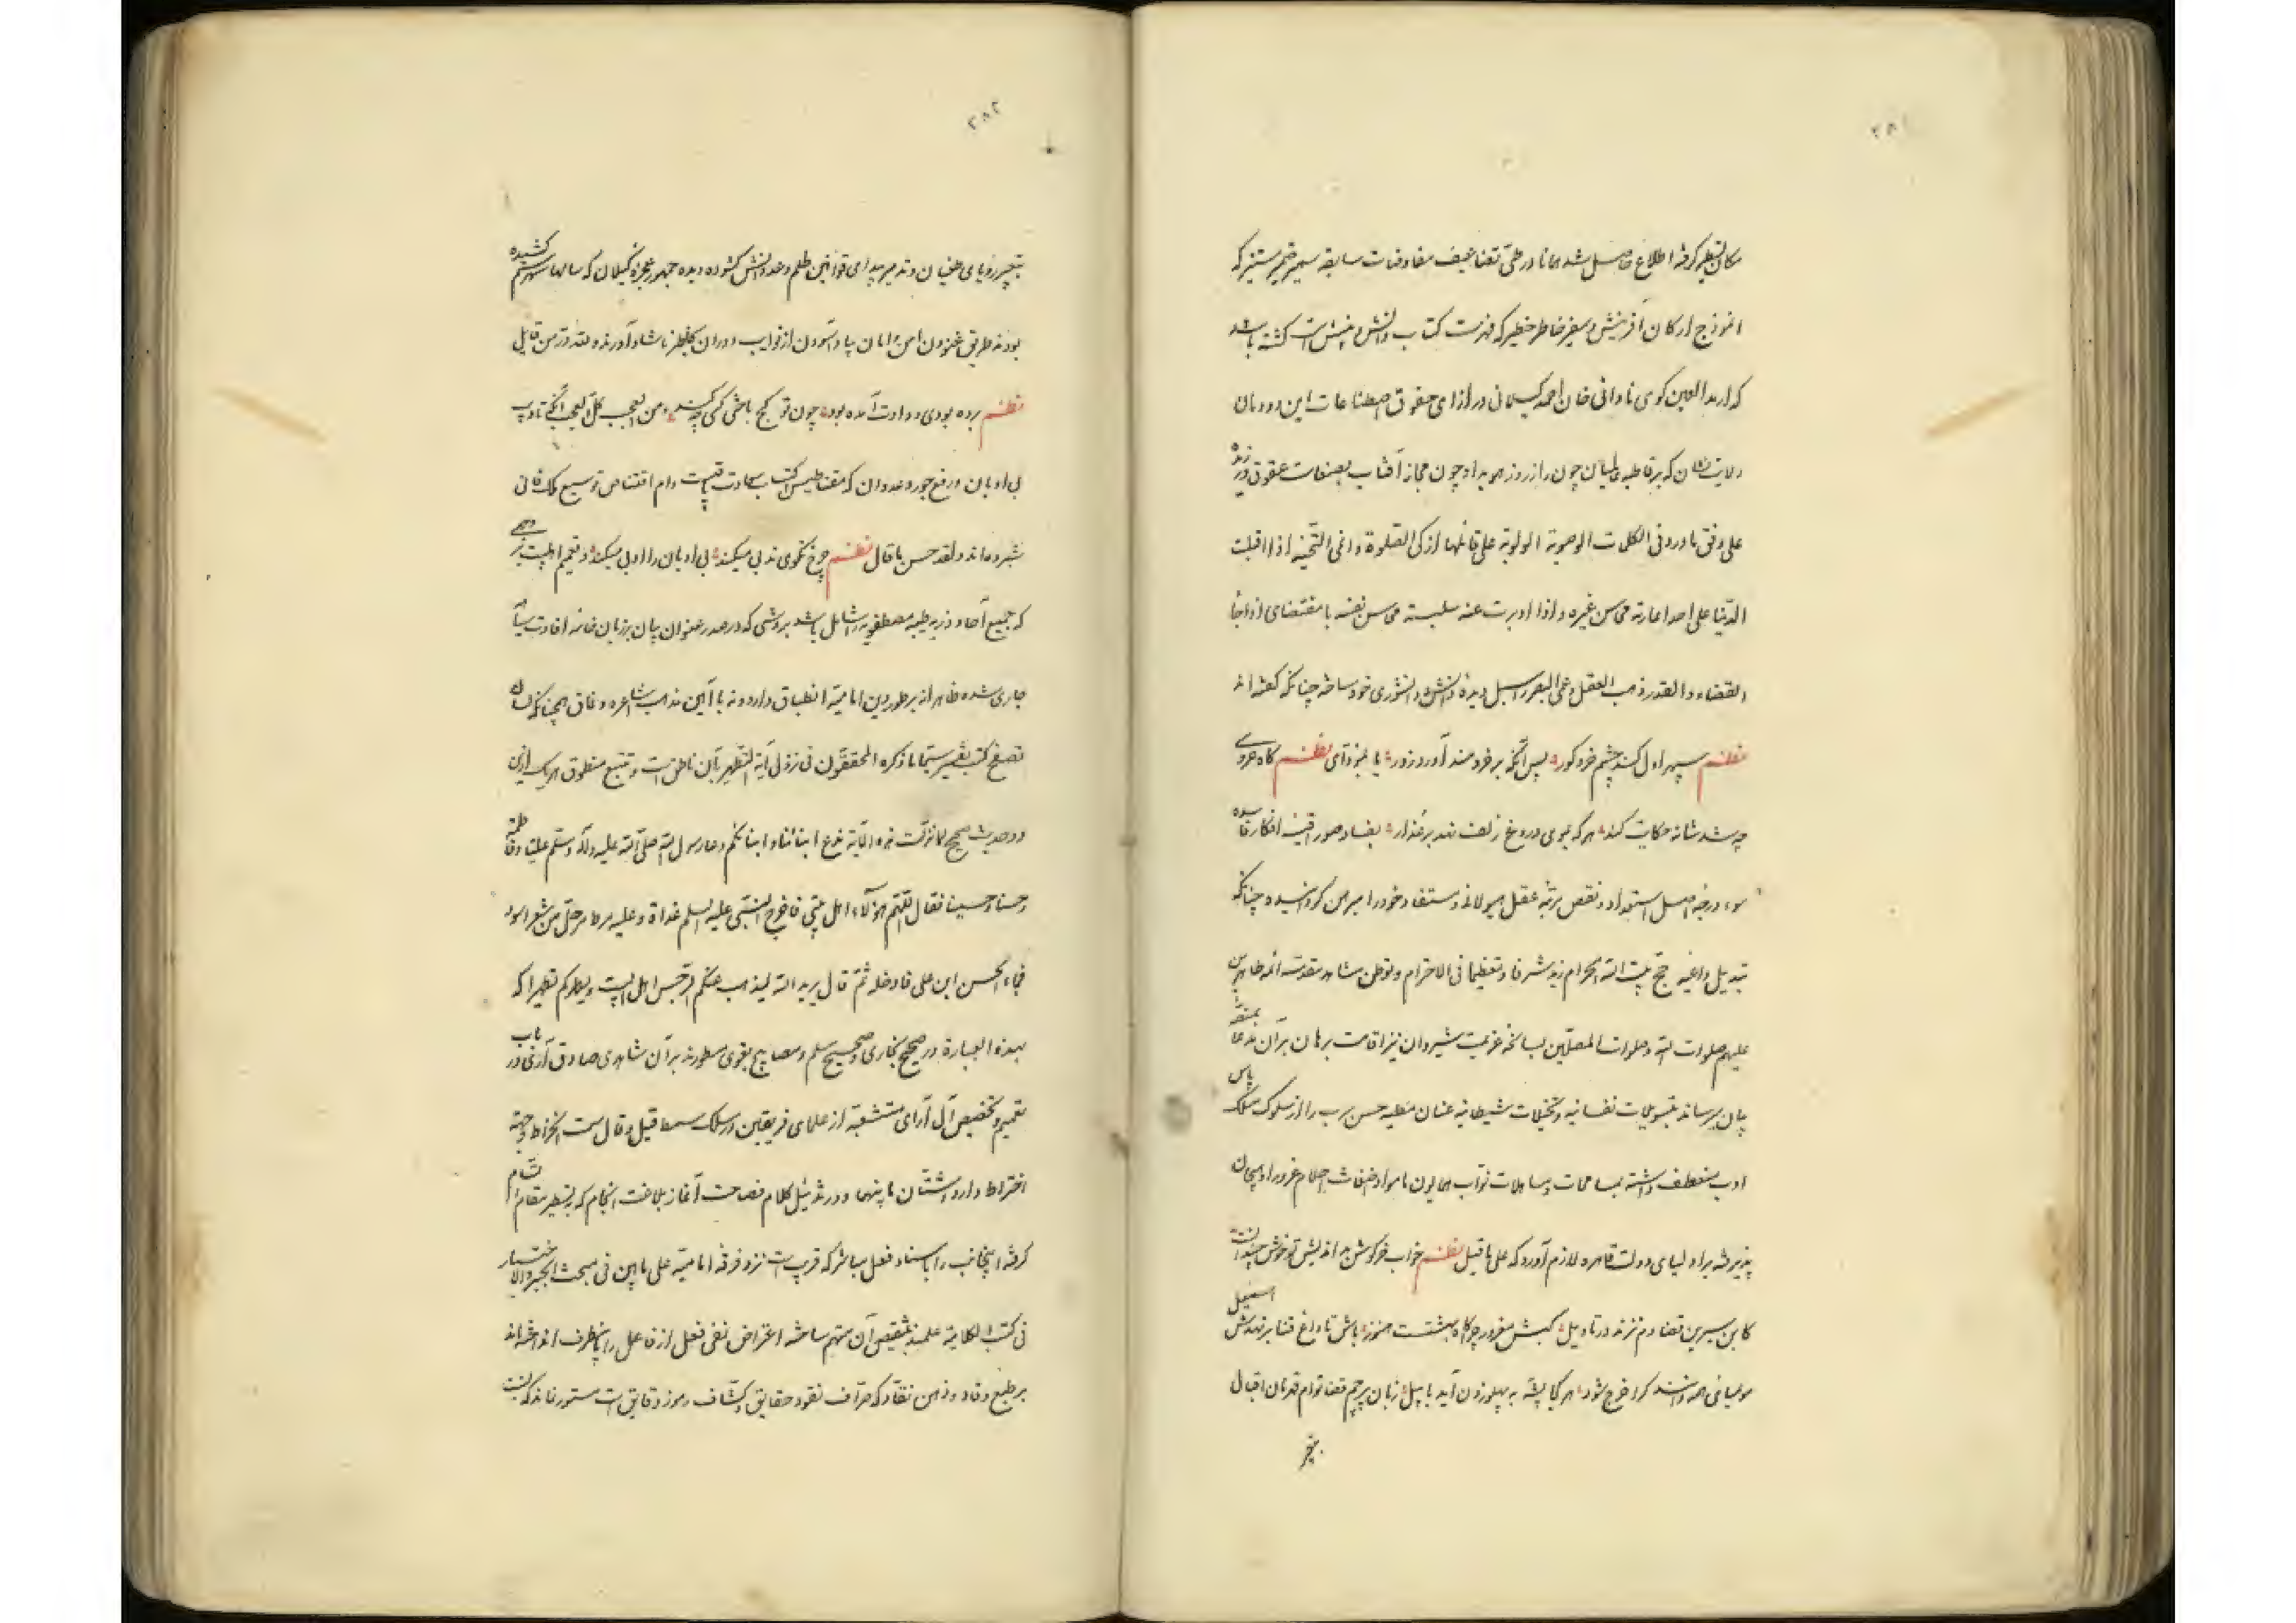 ۲۸۱
مکان تسطیر گرفته اطلاع حاصل شد همانا در طی تضاعیف مفاوضات سابقه سمیر ضمیر مستنیر که
انموذج ارکان آفرینش و سفیر خاطر خطیر که فهرست کتاب دانش و بینش است گشته باشد
که ارمد العین کوی نادانی خان احمد گیلانی در ازای حقوق اصطناعات این دودمان
ولایت نشان که بر قاطبه عالمیان چون راز روز هویدا و چون مجاز آفتاب بصفات عقوق ورزیده
علی وفق ما ورد فی الکلمات الوصویه الولویه علی قائلها ازکی الصلوة و انمی التحیه اذا اقبلت
الدنیا علی احد اعارته محاسن غیره و اذا ادبرت عنه سلبته محاسن نفسه با مقتضای اذا جاء
القضاء و القدر ذهب العقل و عمی البصر اسبل دیده دانش و دانشوری خود ساخته چنانکه گفته‌اند
نظم سپهر اول کند چشم خرد کور پس آنگه بر خردمند آورد زور یا بنوای نظم گاه عروسی
چه شد شانه حکایت کند هر که بموی دروغ زلف نهد بر عذار بفساد صور اقیسه افکار فاسده
سوء درجه اصل استعداد و نقص مرتبه عقل هیولانی و مستفاد خود را مبرهن گردانیده چنانکه
تبدیل داعیه حج بیت الله الحرام زید شرفا و تعظیما فی الاحترام و توطن مشاهد مقدسه ائمه طاهرین
علیهم صلوات الله و صلوات المصلین بسانحه عزیمت شیروان نیز اقامت برهان بر آن مدعا
بیان میرساند بتسویلات نفسانیه و تخیلات شیطانیه عنان مطیه حسن ادب را از سلوک مسلک پاس
ادب منعطف داشته بمسامحات و مساهلات نواب همایون ما مواد اضغاث احلام غرور او هیجان
پذیرفته بر اولیای دولت قاهره لازم آورد که علی ما قیل نظم خواب خرگوش بداندیش تو خوش چندانست
کابن سیرین قضا دم نزند در تاویل کبش مغرور چراگاه بهشتست هنوز باش تا داغ فنا برنهدش اسمعیل
مومیائی همه دانند کرا خرج شود هر کجا پشه به پهلو زدن آید با پیل زبان پرچم قضا توأم قدرتان اقبال
بتعبیر
۲۸۲
بتعبیر رؤیای طغیان و تدمیر مبدای قوانین ظلم و عدوانش گشوده دیده جمهور عجزه گیلان که سالها سهر ستم کشیده
بودند طریق غنودن امن و امان بیاد آسودن از نوایب دوران بخاطر ناشاد آورند و لله در من قایل
نظم برده بودی و داوت آمده بود چون تو کج باختی کسی چه کند و من العجب کل العجب آنکه تادیب
بی ادبان و رفع جور و عدوان که مغناطیس اکتساب سعادت باقیست دام اقتناص توسیع ملک فانی
شمرده‌اند و لقد حسن ما قال نظم چرخ نکوی بدبی میکند بی ادبان را ادبی میکند و تعمیم اهل بیت بروجهی
که جمیع آحاد ذریه طیبه مصطفویه را شامل باشد بروشی که در صدر عنوان بیان بر زبان خامه افادت بنیان
جاری شده ظاهرا نه بر طور دین امامیه انطباق دارد و نه با آیین مذهب اشاعره وفاق همچنانکه لسان
تصفح کتب تفسیر سیما ما ذکره المحققون فی نزول آیة التطهیر بآن ناطق است و تتبع منطوق هر یک ازین
دو حدیث صحیح لما نزلت هذه الآیة ندع ابنائنا و ابنائکم دعا رسول الله صلی الله علیه و آله و سلم علیا و فاطمة
و حسنا و حسینا فقال اللهم هؤلاء اهل بیتی فاخرج النبی علیه السلم غداة و علیه مرط مرحل من شعر اسود
فجاء الحسن ابن علی فادخله ثم قال یرید الله لیذهب عنکم الرجس اهل البیت و یطهرکم تطهیرا که
بهذه العبارة در صحیح بخاری و صحیح مسلم و مصابیح بغوی مسطورند بر آن شاهدی صادق آری در باب
تعمیم و تخصیص آل آرای متشعبه از علمای فریقین در سلک سمط قیل و قال سمت انخراط وجهة
اختراط دارد و شتان ما بینهما و در تذییل کلام فصاحت آغاز بلاغت انجام که بتسطیر مقام اتمام
گرفته اینجانب را باسناد فعل مباشر که قریب است نزد فرقه امامیه علی ما بین فی مبحث الجبر و الاختیار
فی کتب الکلامیه علمند بنقیض آن متهم ساخته اعتراض نفی فعل از فاعل را باینطرف انداخته‌اند
بر طبع وقاد و ذهن نقاد که صراف نقود حقایق و کشاف رموز دقایق است مستور نماند که نسبت